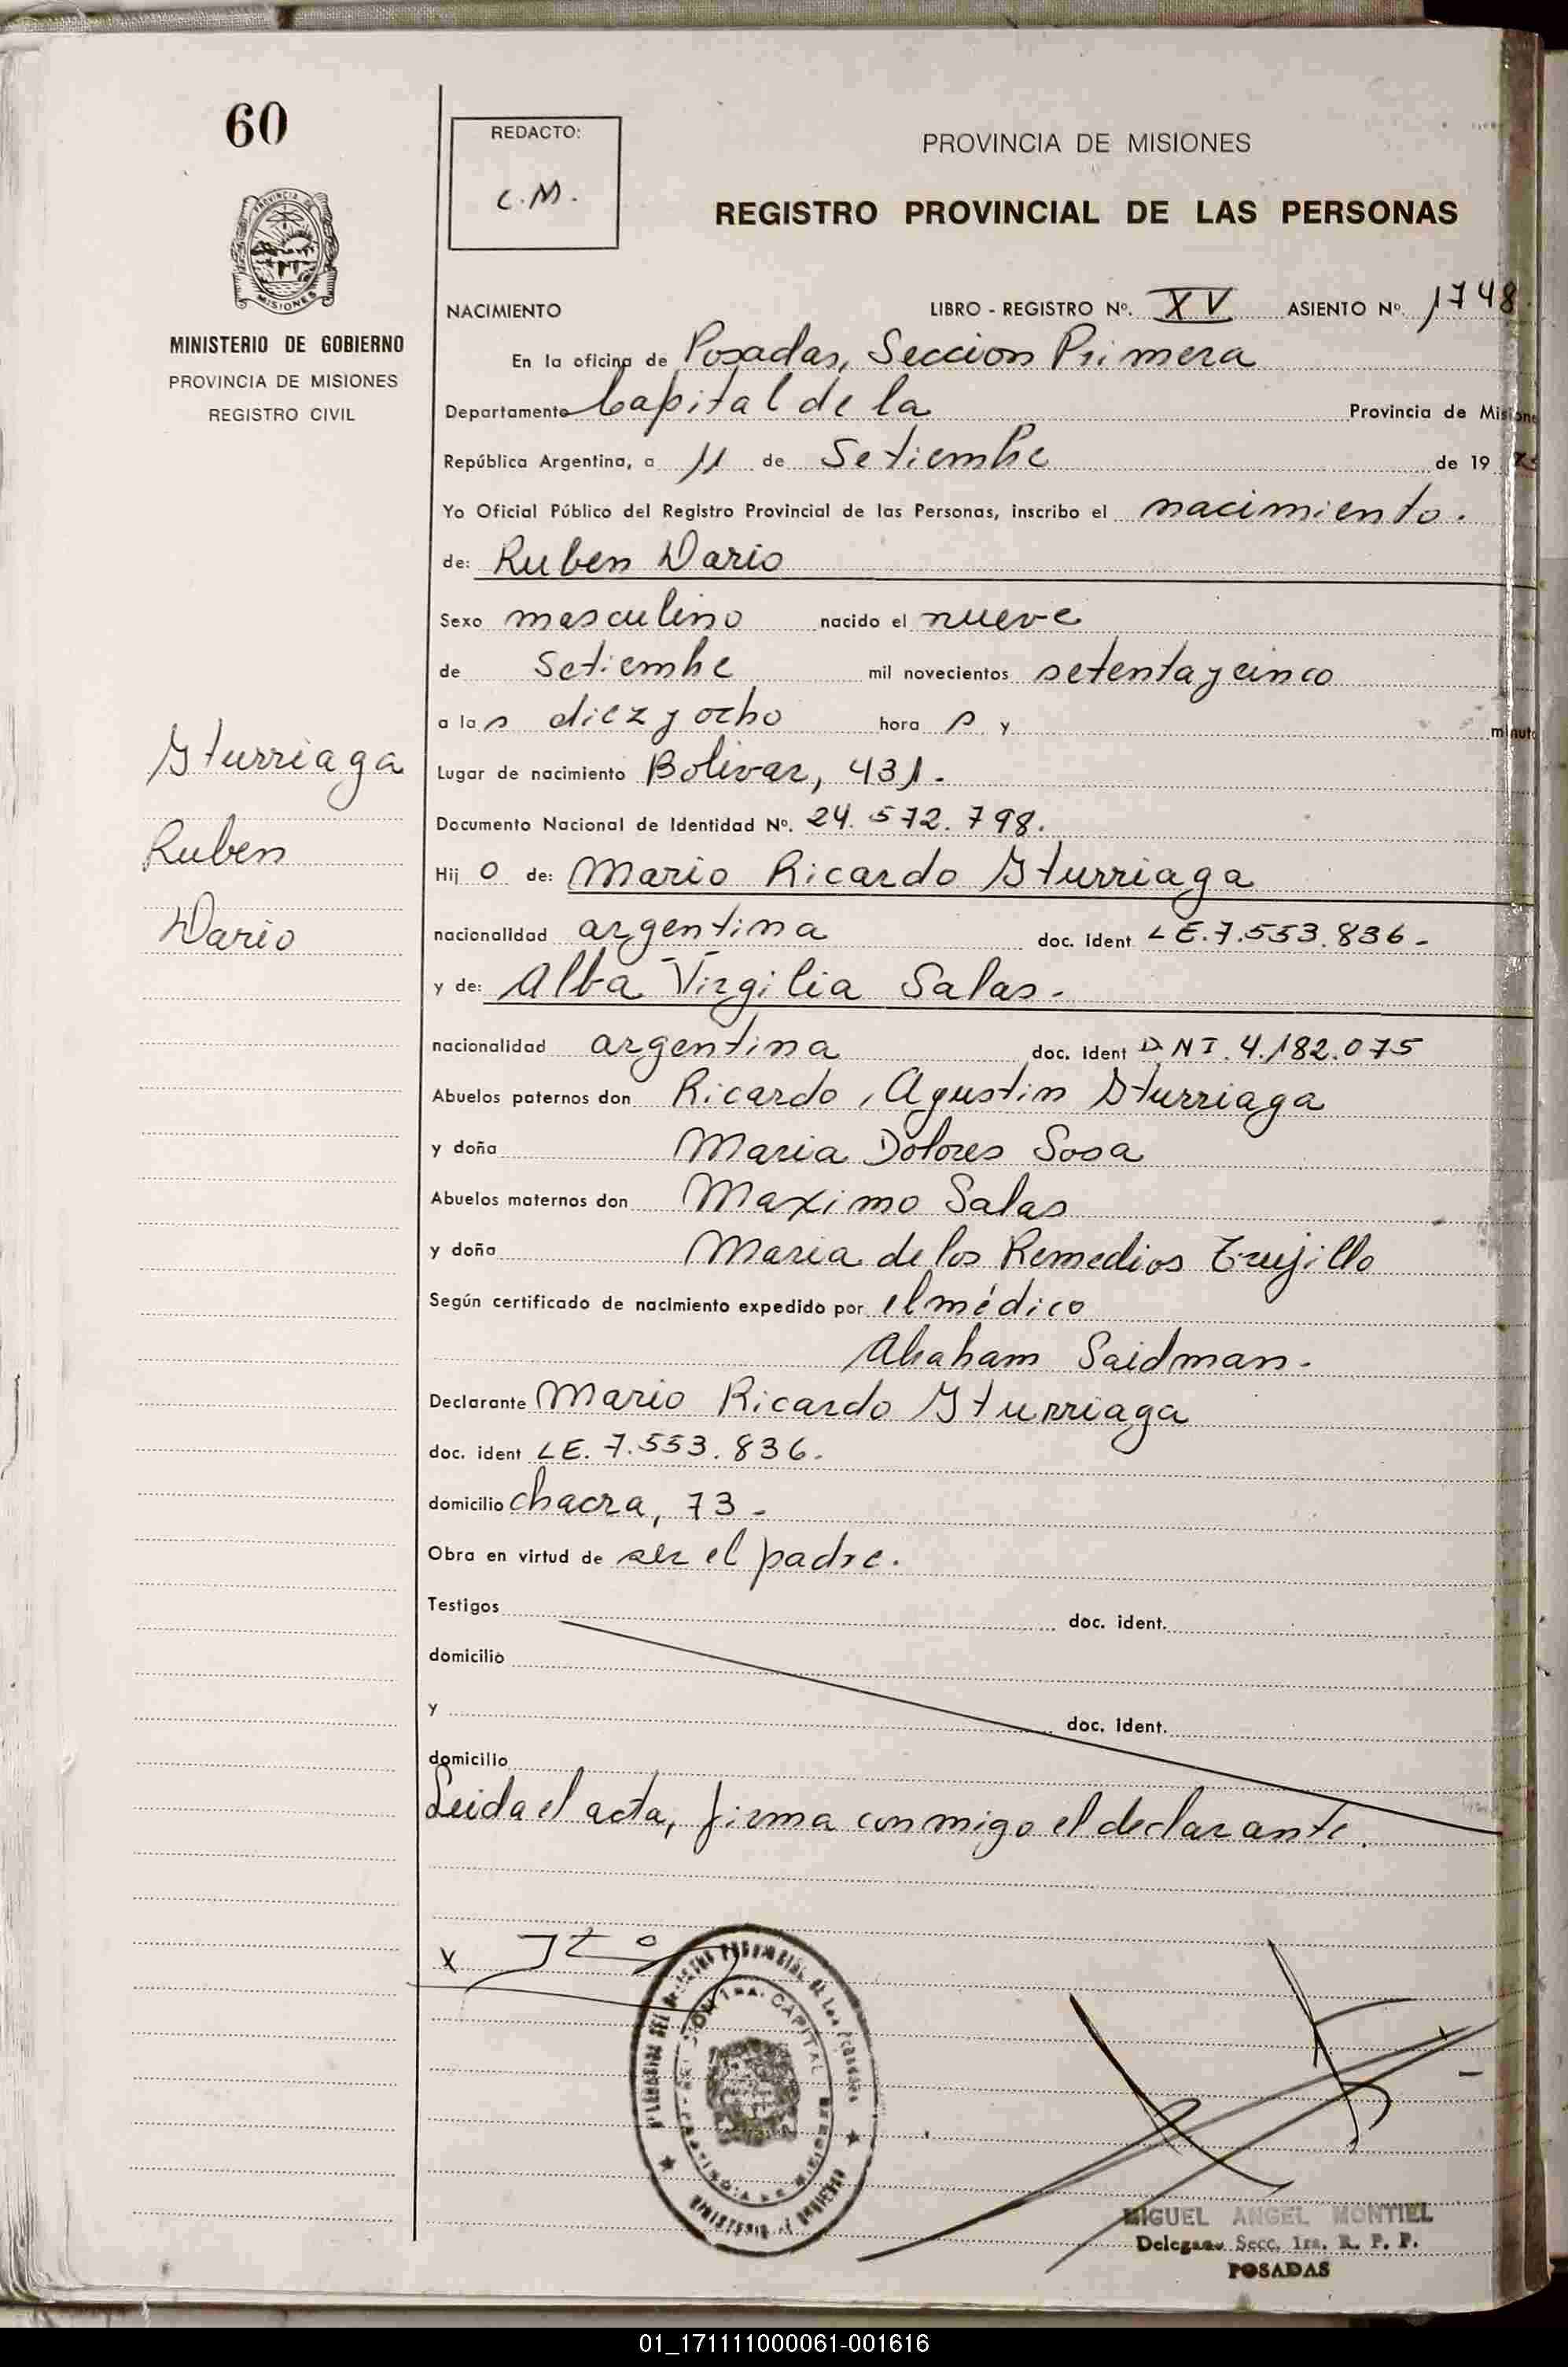 60
REDACTO:
C.M.
PROVINCIA DE MISIONES
REGISTRO PROVINCIAL DE LAS PERSONAS
MISIONES
MINISTERIO DE GOBIERNO
PROVINCIA DE MISIONES
REGISTRO CIVIL
NACIMIENTO LIBRO - REGISTRO Nº. XV ASIENTO Nº. 1748
En la oficina de Posadas, Seccion Primera
Departamento Capital de la Provincia de Misione
República Argentina, a 11 de Setiembre de 19 75
Yo Oficial Público del Registro Provincial de las Personas, inscribo el nacimiento.
de: Ruben Dario
Sexo masculino nacido el nueve
de Setiembre mil novecientos setenta y cinco
a las diez y ocho hora s y minuto
Lugar de nacimiento Bolivar, 431.
Documento Nacional de Identidad Nº. 24.572.798.
Hij o de: Mario Ricardo Yturriaga
nacionalidad argentina doc. ident LE.7.553.836-
y de: Alba Virgilia Salas.
nacionalidad argentina doc. ident DNI.4.182.075
Abuelos paternos don Ricardo, Agustin Yturriaga
y doña Maria Dolores Sosa
Abuelos maternos don Maximo Salas
y doña Maria de los Remedios Trujillo
Según certificado de nacimiento expedido por el médico
Abraham Saidman.
Declarante Mario Ricardo Yturriaga
doc. ident LE. 7.553.836.
domicilio chacra, 73-
Obra en virtud de ser el padre.
Testigos doc. ident.
domicilio
y doc. ident.
domicilio
Leida el acta, firma conmigo el declarante.
Yturriaga
Ruben
Dario
x
MIGUEL ANGEL MONTIEL
Delegado Secc. 1ra. R. P. P.
POSADAS
01_171111000061-001616